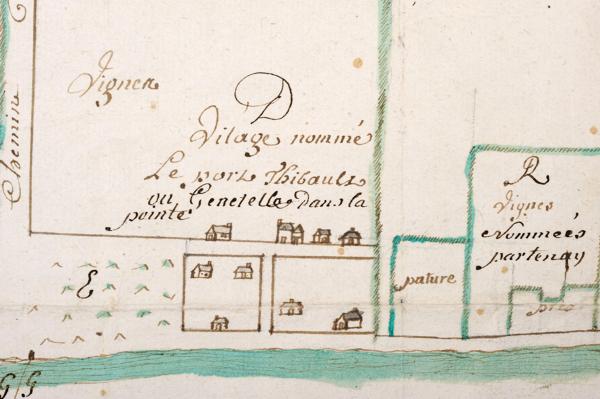 Chemin
Vignes
D
Vilage nommé
Le port Thibault
ou Genetelle dans la
pointe
E
R
Vignes
Nommeés
partenay
pature
pré
G G